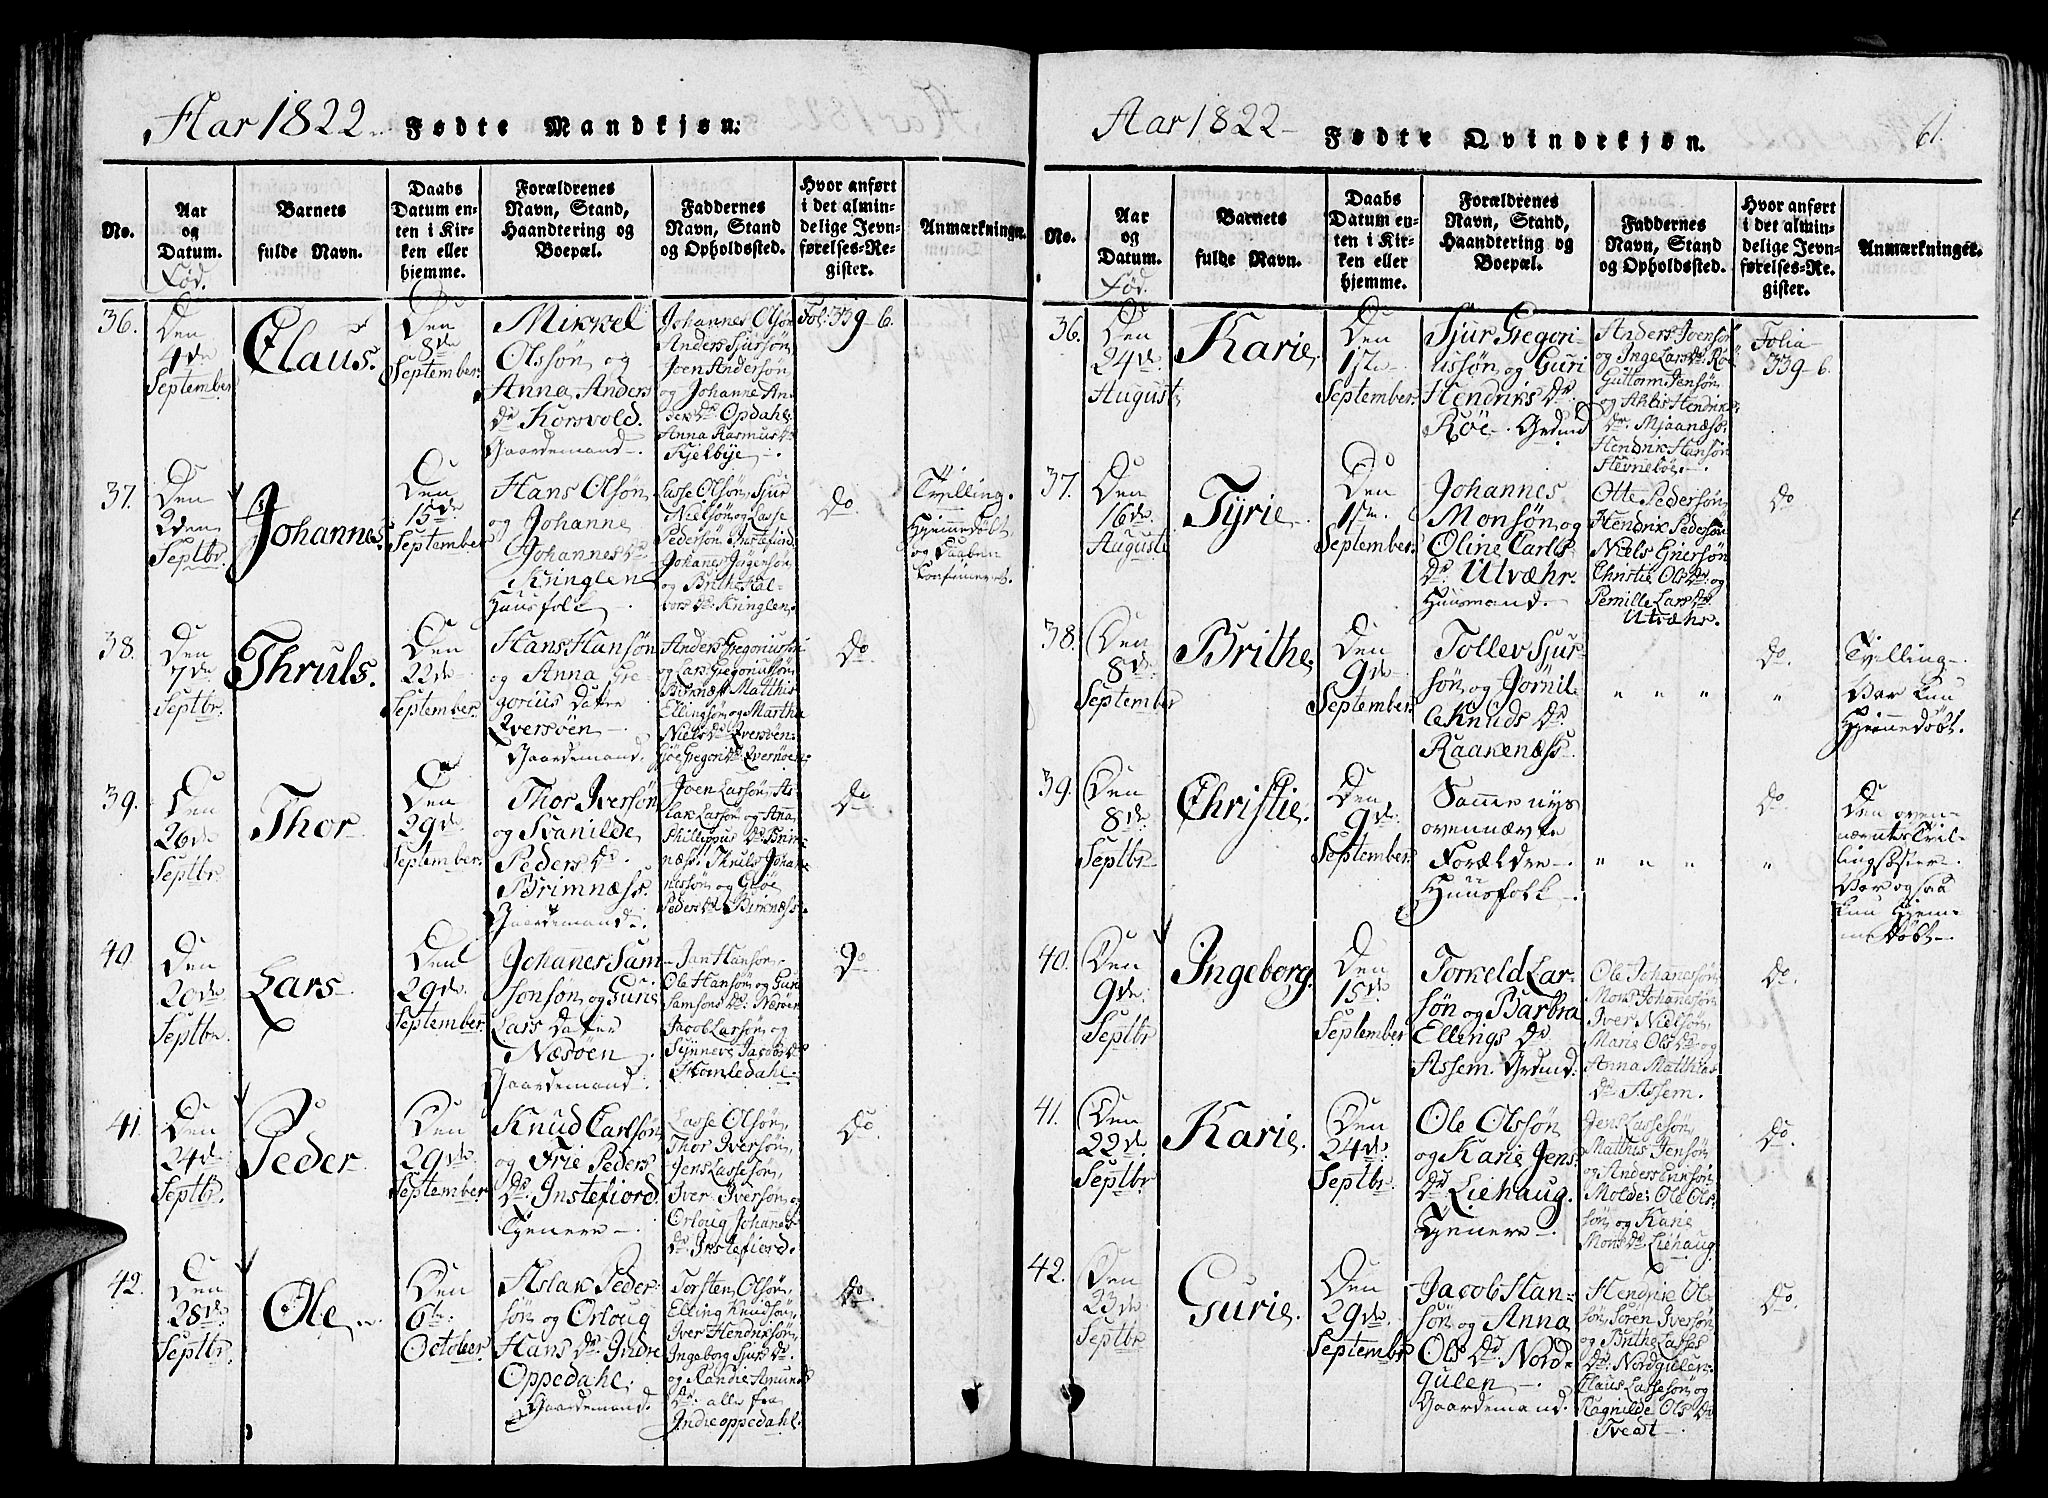 Aar 1822. Fødte Mandkjøn:
No.
Aar
og
Datum.
Fød.
Barnets
fulde Navn.
Daabs
Datum en-
ten i Kir-
ken eller
hjemme.
Forældrenes
Navn, Stand,
Haandtering og
Boepæl.
Faddernes
Navn, Stand
og Opholdssted.
Hvor anført
i det almin-
delige Jevn-
førelses-Re-
gister.
Anmærkninger.
36.
Den
4de
September
Claus.
Den
8de
September.
Mikkel
Olssøn og
Anna Anders
Dr Korsvold.
Gaardemand.
Johannes Olsøn
Anders Sjursøn
Joen Andersøn
og Johanne An-
ders Dr Opdahl.
Anna Rasmus Dr
Kjelbye
Fol. 339-6.
37.
Den
2den
Septbr.
Johannes.
Den
15de
September
Hans Olsøn
og Johanne
Johannes Dr
Kringlen
Huusfolk
Lasse Olsøn, Sjur
Nielsøn og Lasse
Pedersøn Instefiord
Johannes Jørgensøn
og Brithe Hal-
vors Dr Kringlen.
Do
Tvilling.
Hjemmedøbt
og
38.
Den
7de
Septbr.
Thruls.
Den
22de
September.
Hans Hansøn
og Anna Gre-
gorius Datter
Qversøen
Gaardemand.
Anders Gregoriussøn
og Lars Gregoriussøn
Birknæss Matthis
Ellingsøn og Martha
Niels Dr Qversøen
Do
39.
Den
26de
Septbr.
Thor
Den
29de
September.
Thor Iversøn
og Svanilde
Peders Dr.
Brimnæss.
Gaardemand.
Joen Larsøn, As-
lak Larsøn og Anna
Phillippus Dr Brim-
næss. Thruls Johan-
nessøn og Gløe
Peders Dr Birknæss.
Do
40.
Den
20de
Septbr.
Lars
Den
29de
September.
Johannes Sam-
sonsøn og Gurie
Lars Datter
Næsøen
Gaardemand.
Jan Hansøn,
Ole Hansøn og Guri
Samsons Dr. Næsøen
Jacob Larsøn og
Synneve Jacobs Dr
Homledahl.
Do
41.
Den
24de
Septbr.
Peder
Den
29de
September
Knud Carlsøn
og Frie Peders
Dr. Instefiord.
Tjenere
Lasse Olsøn,
Thor Iversøn,
Jens Lassesøn,
Iver Iversøn og
Orloug Johannes
Dr. Instefiord.
Do.
42.
Den
28de
Septbr.
Ole
Den
6te
October
Aslak Peder-
søn og Orloug
Hans Dr. Indre
Oppedahl.
Gaardemand.
Torsten Olsøn,
Elling Knudsøn,
Iver Hendriksøn,
Ingeborg Sjurs Dr.
og Randie Amunds
Dr. alle fra
Indreoppedahl.
Do.
Aar 1822 Fødte Qvindekjøn.
61.
No.
Aar
og
Datum.
Fød.
Barnets
fulde Navn.
Daabs
Datum en-
ten i Kir-
ken eller
hjemme.
Forældrenes
Navn, Stand,
Haandtering og
Boepæl.
Faddernes
Navn, Stand
og Opholdssted.
Hvor anført
i det almin-
delige Jevn-
førelses-Re-
gister.
Anmærkninger.
36.
Den
24de
August
Karie.
Den
1ste
September.
Sjur Gregori-
ussøn og Guri
Hendriks Dr.
Røe
Anders Iversøn
og Inge Lars Dr. Røe
Guttorm Jensøn
og Ahlis Hendriks
Dr. Mjaanæss.
Hendrik Hansøn
Stevnebøe.
Folia
339-6.
37.
Den
16de
Auguste
Tyrie.
Den
1ste
September.
Johannes
Monsøn og
Oline Carls
Dr. Utvæhr.
Huusmand.
Otte Pedersøn,
Hendrik Pedersøn
Niels Griersøn
Christie Ols Dr. og
Pernille Lars Dr.
Utvæhr.
Do
38.
Den
8de
September
Brithe
Den
9de
September.
Tollev Sjur-
søn og Jørnil-
le Knuds Dr.
Raakenæss.
" " "
Do.
"
Tvilling
Var kun
Hjemmedøbt.
39.
Den
8de.
Septbr
Christie.
Den
9de
September.
Samme nys
ovennævnte
Forældre
Huusfolk
" " "
Do
"
Den oven-
nævntes Tvil-
lingsøster
Var ogsaa
kun Hjem-
medøbt
40.
Den
9de
Septbr
Ingeborg.
Den
15de.
September
Torkeld Lar-
søn og Barbra
Ellings Dr
Assem.
Ole Johannesøn,
Mons Johannesøn
Iver Nielsøn,
Marie Ols Dr og
Anna Matthias
Dr Assem.
Do.
41.
Den
22de
Septbr
Karie.
Den
24de
Septbr.
Ole Olssøn
og Karie Jens
Dr Liehaug.
Tjenere
Jens Lassesøn,
Matthis Jensøn
og Anders Eriksøn
Molde; Ole Ols-
søn og Karie
Mons Dr Liehaug.
Do.
42.
Den
23de
Septbr
Gurie.
Den
29de
Septembr.
Jacob Han-
søn og Anna
Ols Dr Nord-
gulen
Gaardemand.
Hendrik Ol-
søn, Søren Iversøn
og Brithe Lasses
Dr. Nordgulen.
Claus Lassesøn og
Ragnilde Ols Dr
Tvedt
Do.